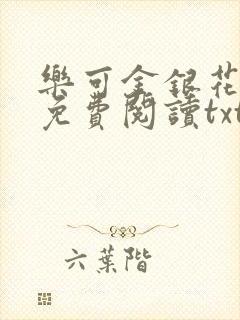 樂可金銀花
免費閱讀txt
六葉階